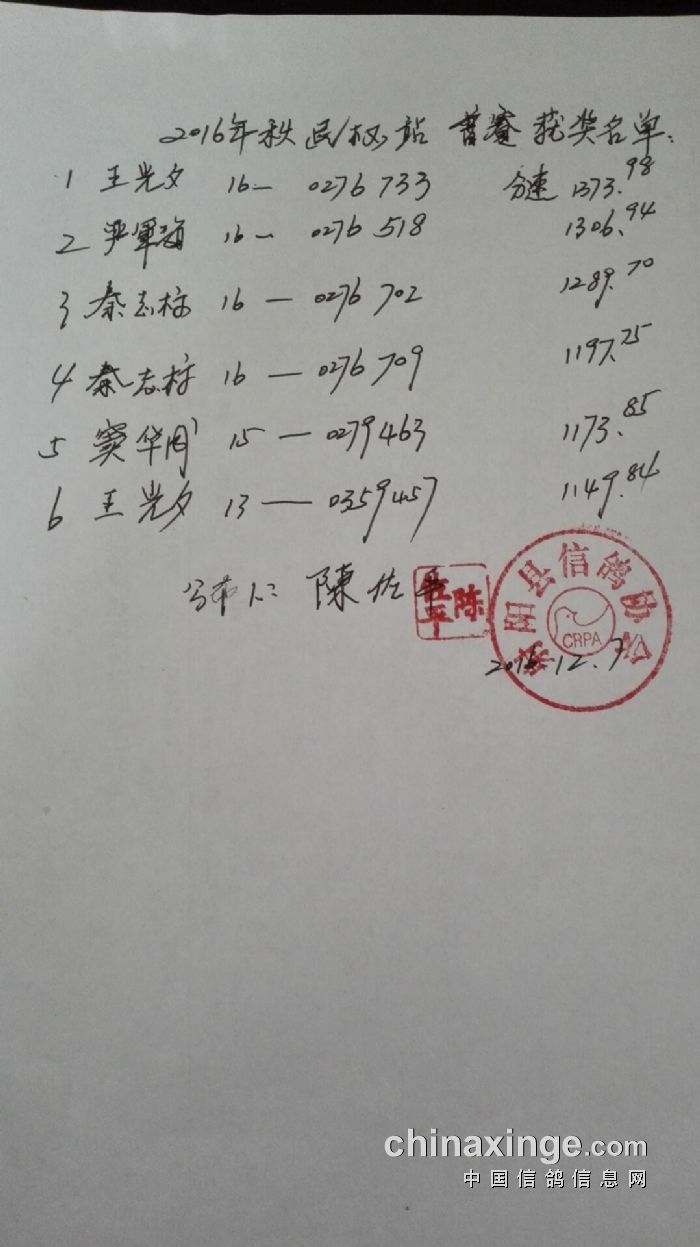 2016年秋民权站普赛获奖名单:
1 王光夕 16— 0276733 分速 1373.98
2 严軍 16— 0276518 1306.94
3 秦志标 16—0276702 1289.70
4 秦志标 16—0276709 1197.25
5 窦华 15—0279463 1173.85
6 王光夕 13—0359457 1149.84
公布人: 陳佐平
陈佐平
阳县信鸽协会
CRPA
2016.12.7
chinaxinge.com
中国信鸽信息网